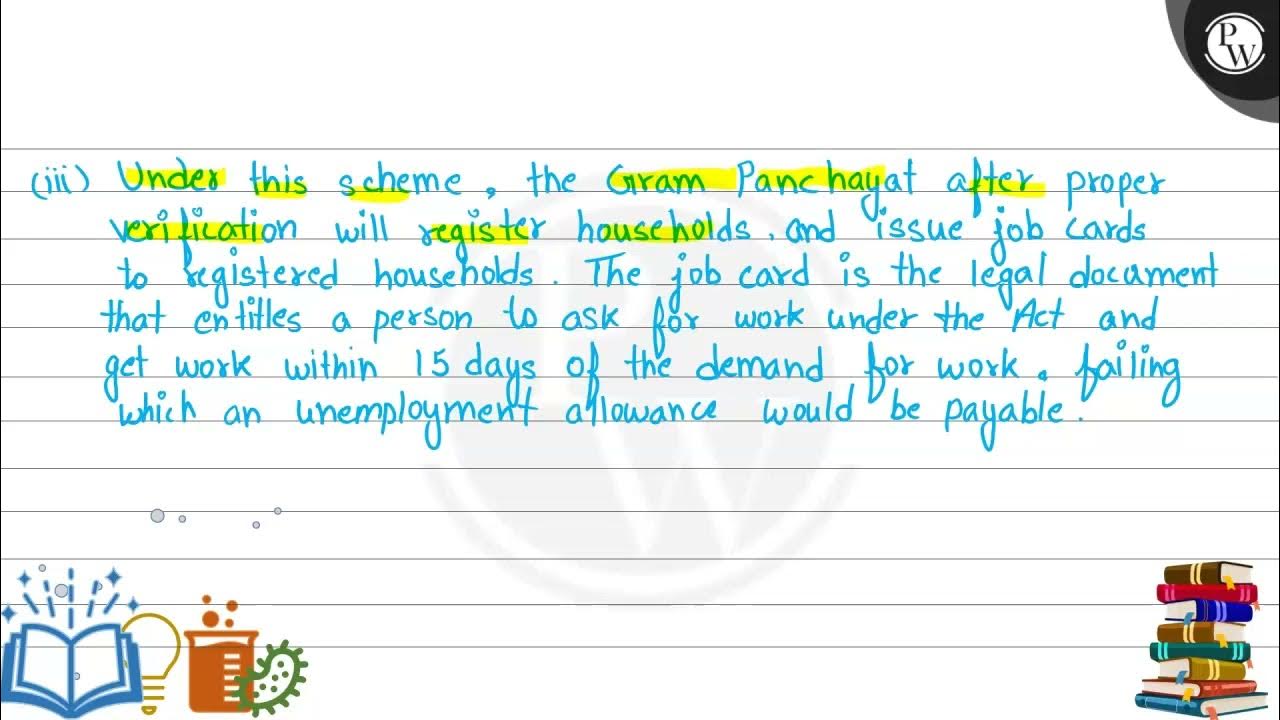 PW
(iii) Under this scheme, the Gram Panchayat after proper
verification will register households, and issue job cards
to registered households. The job card is the legal document
that entitles a person to ask for work under the Act and
get work within 15 days of the demand for work. failing
which an unemployment allowance would be payable.